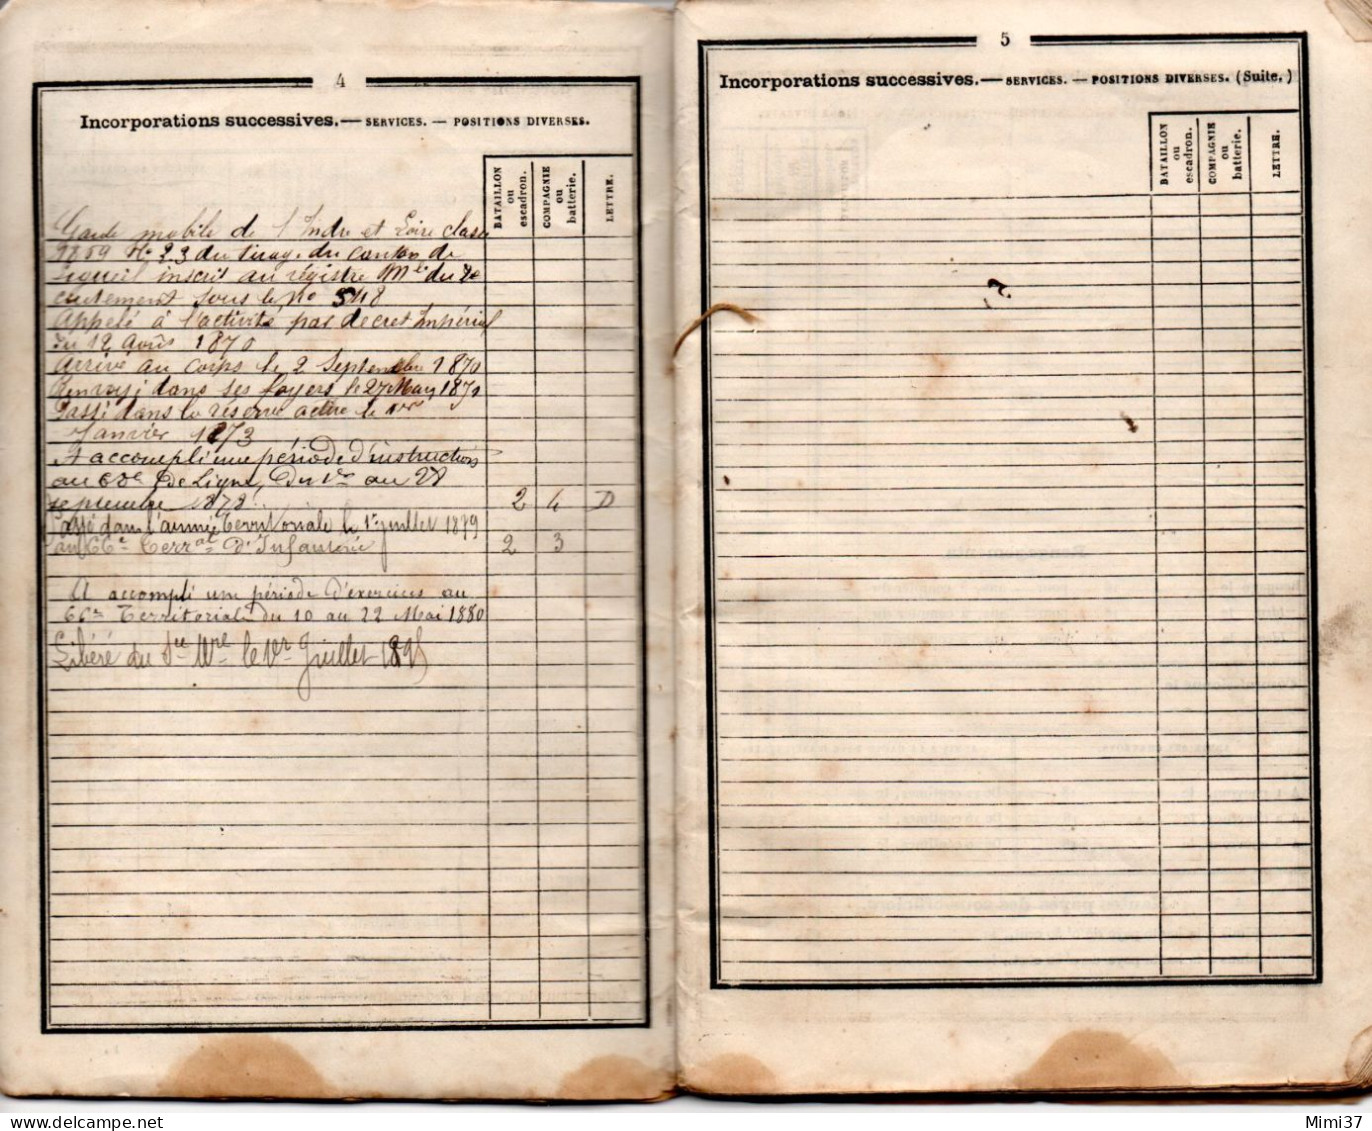 4
Incorporations successives. — SERVICES. — POSITIONS DIVERSES.
BATAILLON ou escadron.
COMPAGNIE ou batterie.
LETTRE.
Garde mobile de l'Indre et Loire classe
1869 No 23 du tirage du canton de
Ligueil inscrit au régistre Mle du Re
crutement sous le No 548
Appelé à l'activité par decret Impérial
du 12 Août 1870
Arrivé au corps le 2 Septembre 1870
Renvoyé dans ses foyers le 27 Mars 1871
Passé dans la réserve active le 1er
Janvier 1873
A accompli une période d'instruction
au de Ligne, Du 1er au 28
septembre 1878. 2 4 D
Passé dans l'armée Territoriale le 1er juillet 1879
au 66e Terral d'Infanterie 2 3
A accompli une période d'exercices au
66e Territoriale du 10 au 22 Mai 1880
Libéré du Sce Mre le 1er Juillet
5
Incorporations successives. — SERVICES. — POSITIONS DIVERSES. (Suite.)
BATAILLON ou escadron.
COMPAGNIE ou batterie.
LETTRE.
Mimi37